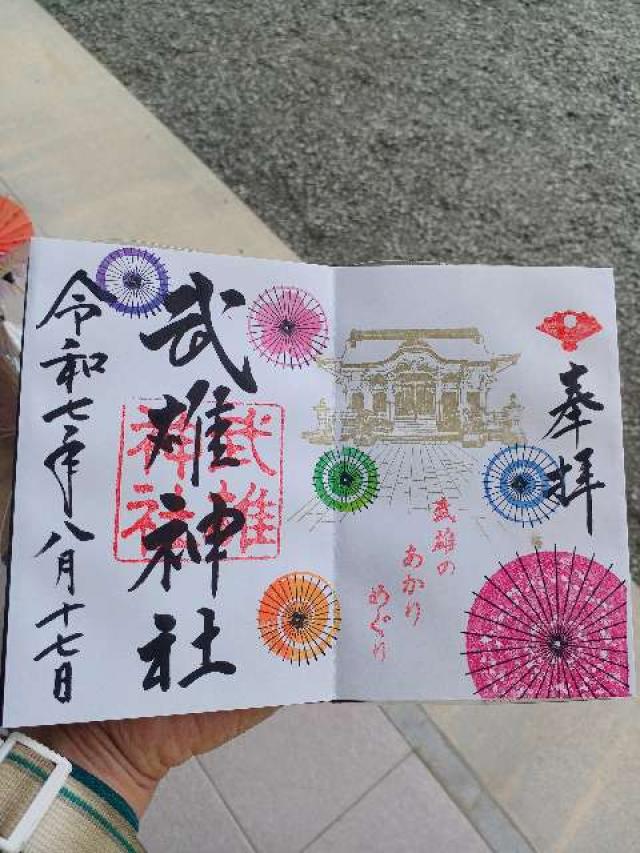 奉拝
武雄の
あかり
めぐり
武雄神社
武雄
神社
令和七年八月十七日